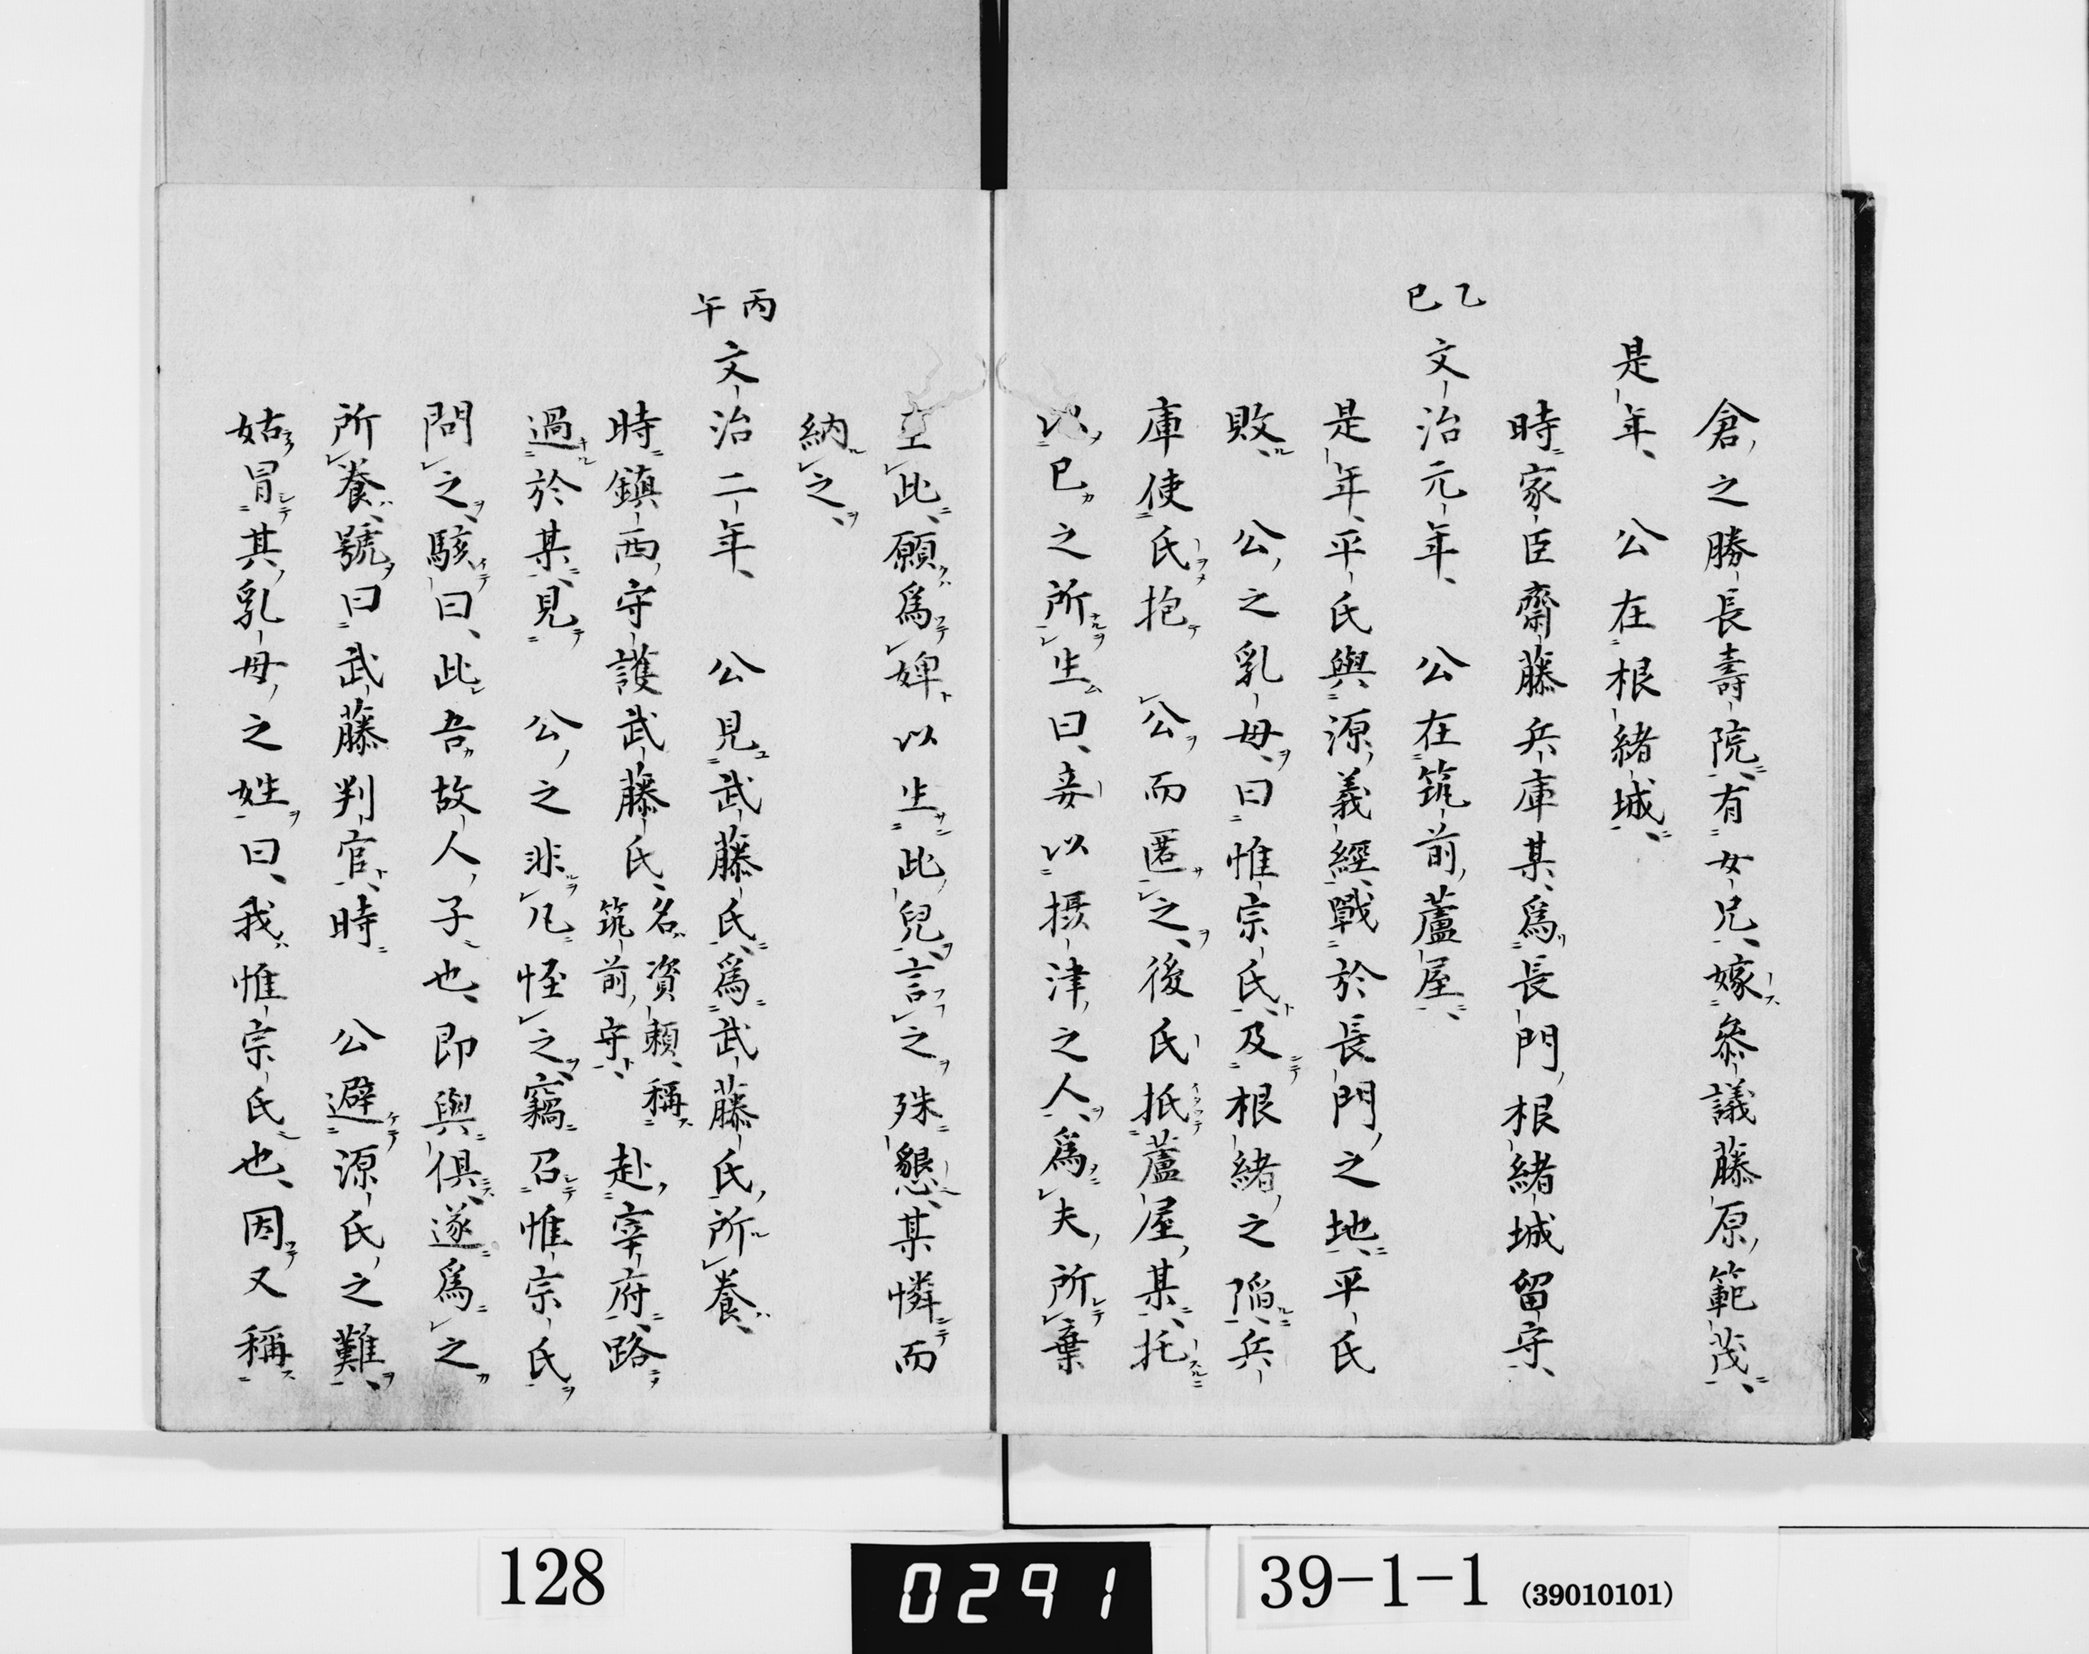 倉之勝長壽院有女兄嫁參議藤原範茂
是年公在根緒城
時家臣齋藤兵庫某爲長門根緒城留守
乙巳
文治元年公在筑前蘆屋
是年平氏與源義經戰於長門之地平氏
敗公之乳母曰惟宗氏及根緒之陷兵
庫使氏抱公而匿之後氏抵蘆屋某托
以巳之所生曰妾以攝津之人爲夫所棄
至此願爲婢以生此兒言之殊懇某憐而
納之
丙午
文治二年公見武藤氏爲武藤氏所養
時鎮西守護武藤氏名資頼稱筑前守赴宰府路
過於某見公之非凡怪之竊召惟宗氏
問之駭曰此吾故人子也即與俱遂爲之
所養號曰武藤判官時公避源氏之難
姑冒其乳母之姓曰我惟宗氏也因又稱
128
0291
39-1-1 (39010101)